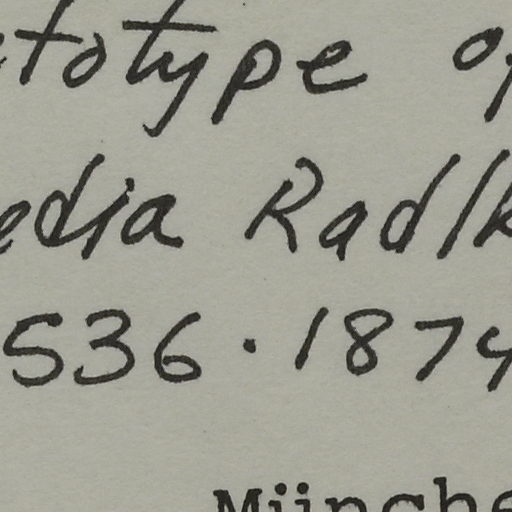 totype of
edia Radlk
536 · 1874
Münche